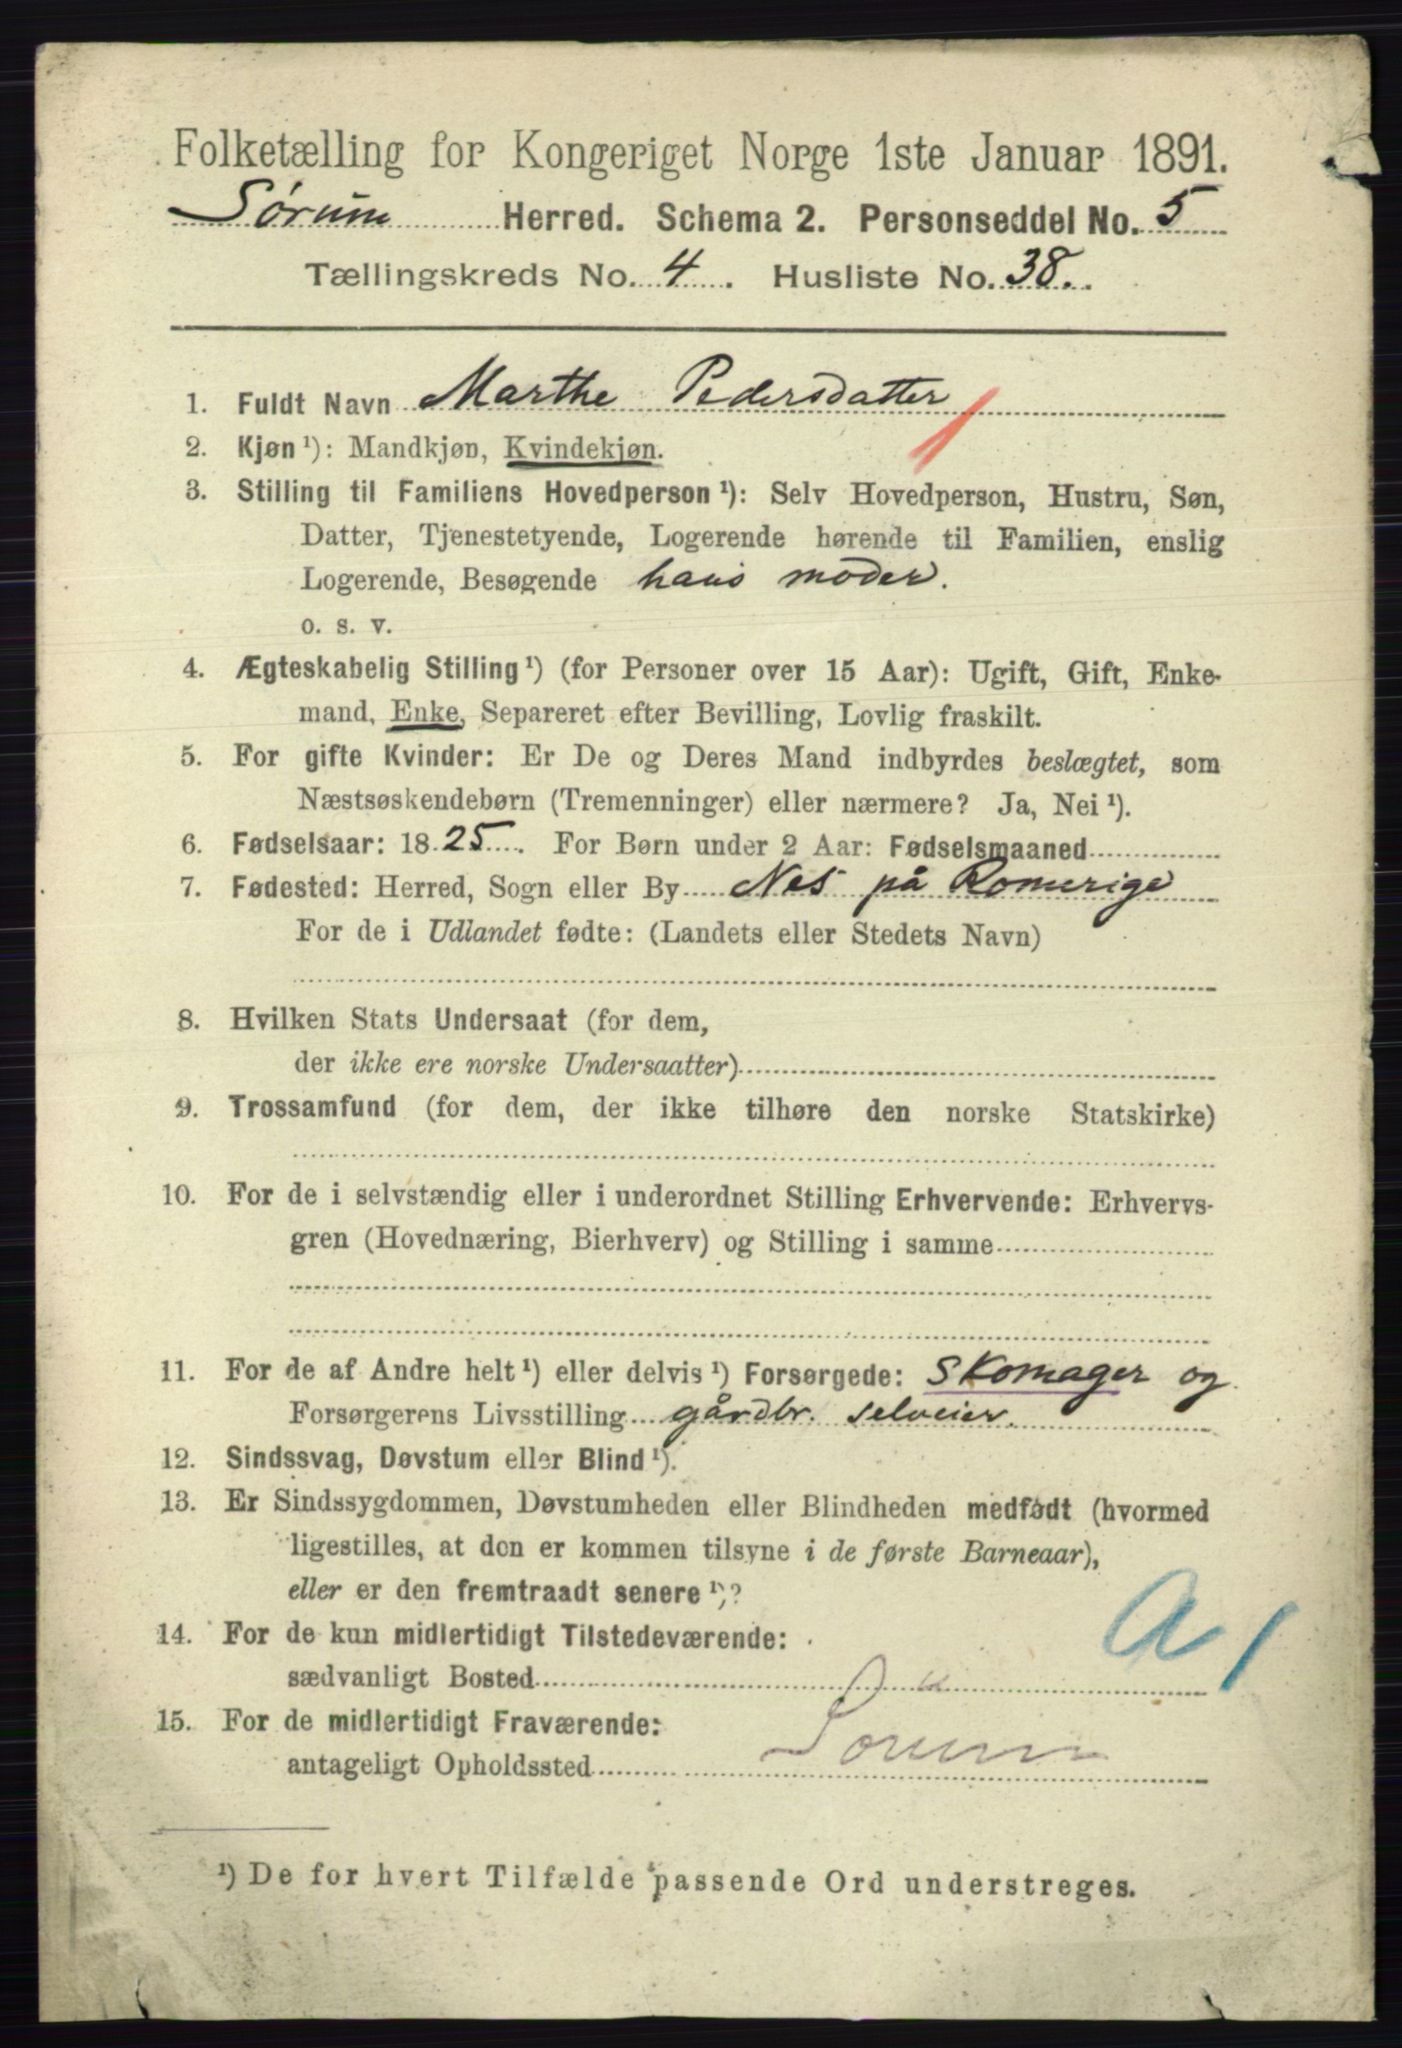 Folketælling for Kongeriget Norge 1ste Januar 1891.
Sørum Herred. Schema 2. Personseddel No. 5
Tællingskreds No. 4. Husliste No. 38.
1. Fuldt Navn Marthe Pedersdatter
2. Kjøn ¹): Mandkjøn, Kvindekjøn.
3. Stilling til Familiens Hovedperson ¹): Selv Hovedperson, Hustru, Søn,
Datter, Tjenestetyende, Logerende hørende til Familien, enslig
Logerende, Besøgende hans moder.
o. s. v.
4. Ægteskabelig Stilling ¹) (for Personer over 15 Aar): Ugift, Gift, Enke-
mand, Enke, Separeret efter Bevilling, Lovlig fraskilt.
5. For gifte Kvinder: Er De og Deres Mand indbyrdes beslægtet, som
Næstsøskendebørn (Tremenninger) eller nærmere? Ja, Nei ¹).
6. Fødselsaar: 1825. For Børn under 2 Aar: Fødselsmaaned
7. Fødested: Herred, Sogn eller By Nes på Romerige
For de i Udlandet fødte: (Landets eller Stedets Navn)
8. Hvilken Stats Undersaat (for dem,
der ikke ere norske Undersaatter)
9. Trossamfund (for dem, der ikke tilhøre den norske Statskirke)
10. For de i selvstændig eller i underordnet Stilling Erhvervende: Erhvervs-
gren (Hovednæring, Bierhverv) og Stilling i samme
11. For de af Andre helt ¹) eller delvis ¹) Forsørgede: Skomager og
Forsørgerens Livsstilling gårdbr. selveier.
12. Sindssvag, Døvstum eller Blind ¹).
13. Er Sindssygdommen, Døvstumheden eller Blindheden medfødt (hvormed
ligestilles, at den er kommen tilsyne i de første Barneaar),
eller er den fremtraadt senere ¹)?
a 1
14. For de kun midlertidigt Tilstedeværende:
sædvanligt Bosted
15. For de midlertidigt Fraværende:
antageligt Opholdssted
¹) De for hvert Tilfælde passende Ord understreges.